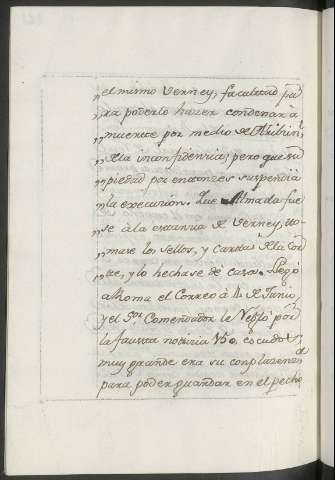 „ el mismo Verney, facultad pa
„ ra poderlo hazer condenar à
„ muerte por medio del Tribun.l
„ de la inconfidencia; pero que su
„ piedad por entonces suspendia
„ la execucion. Que Almada fue
se à la estancia de Verney, to-
mase los sellos, y Cartas de la Cor
te, y lo hechase de casa. Llegó
a Roma el Correo à 11 de Junio
y el S.or Comendador le Regló por
la fausta noticia 150. escudos;
muy grande era su complazenz.a
para poder guardar en el pecho